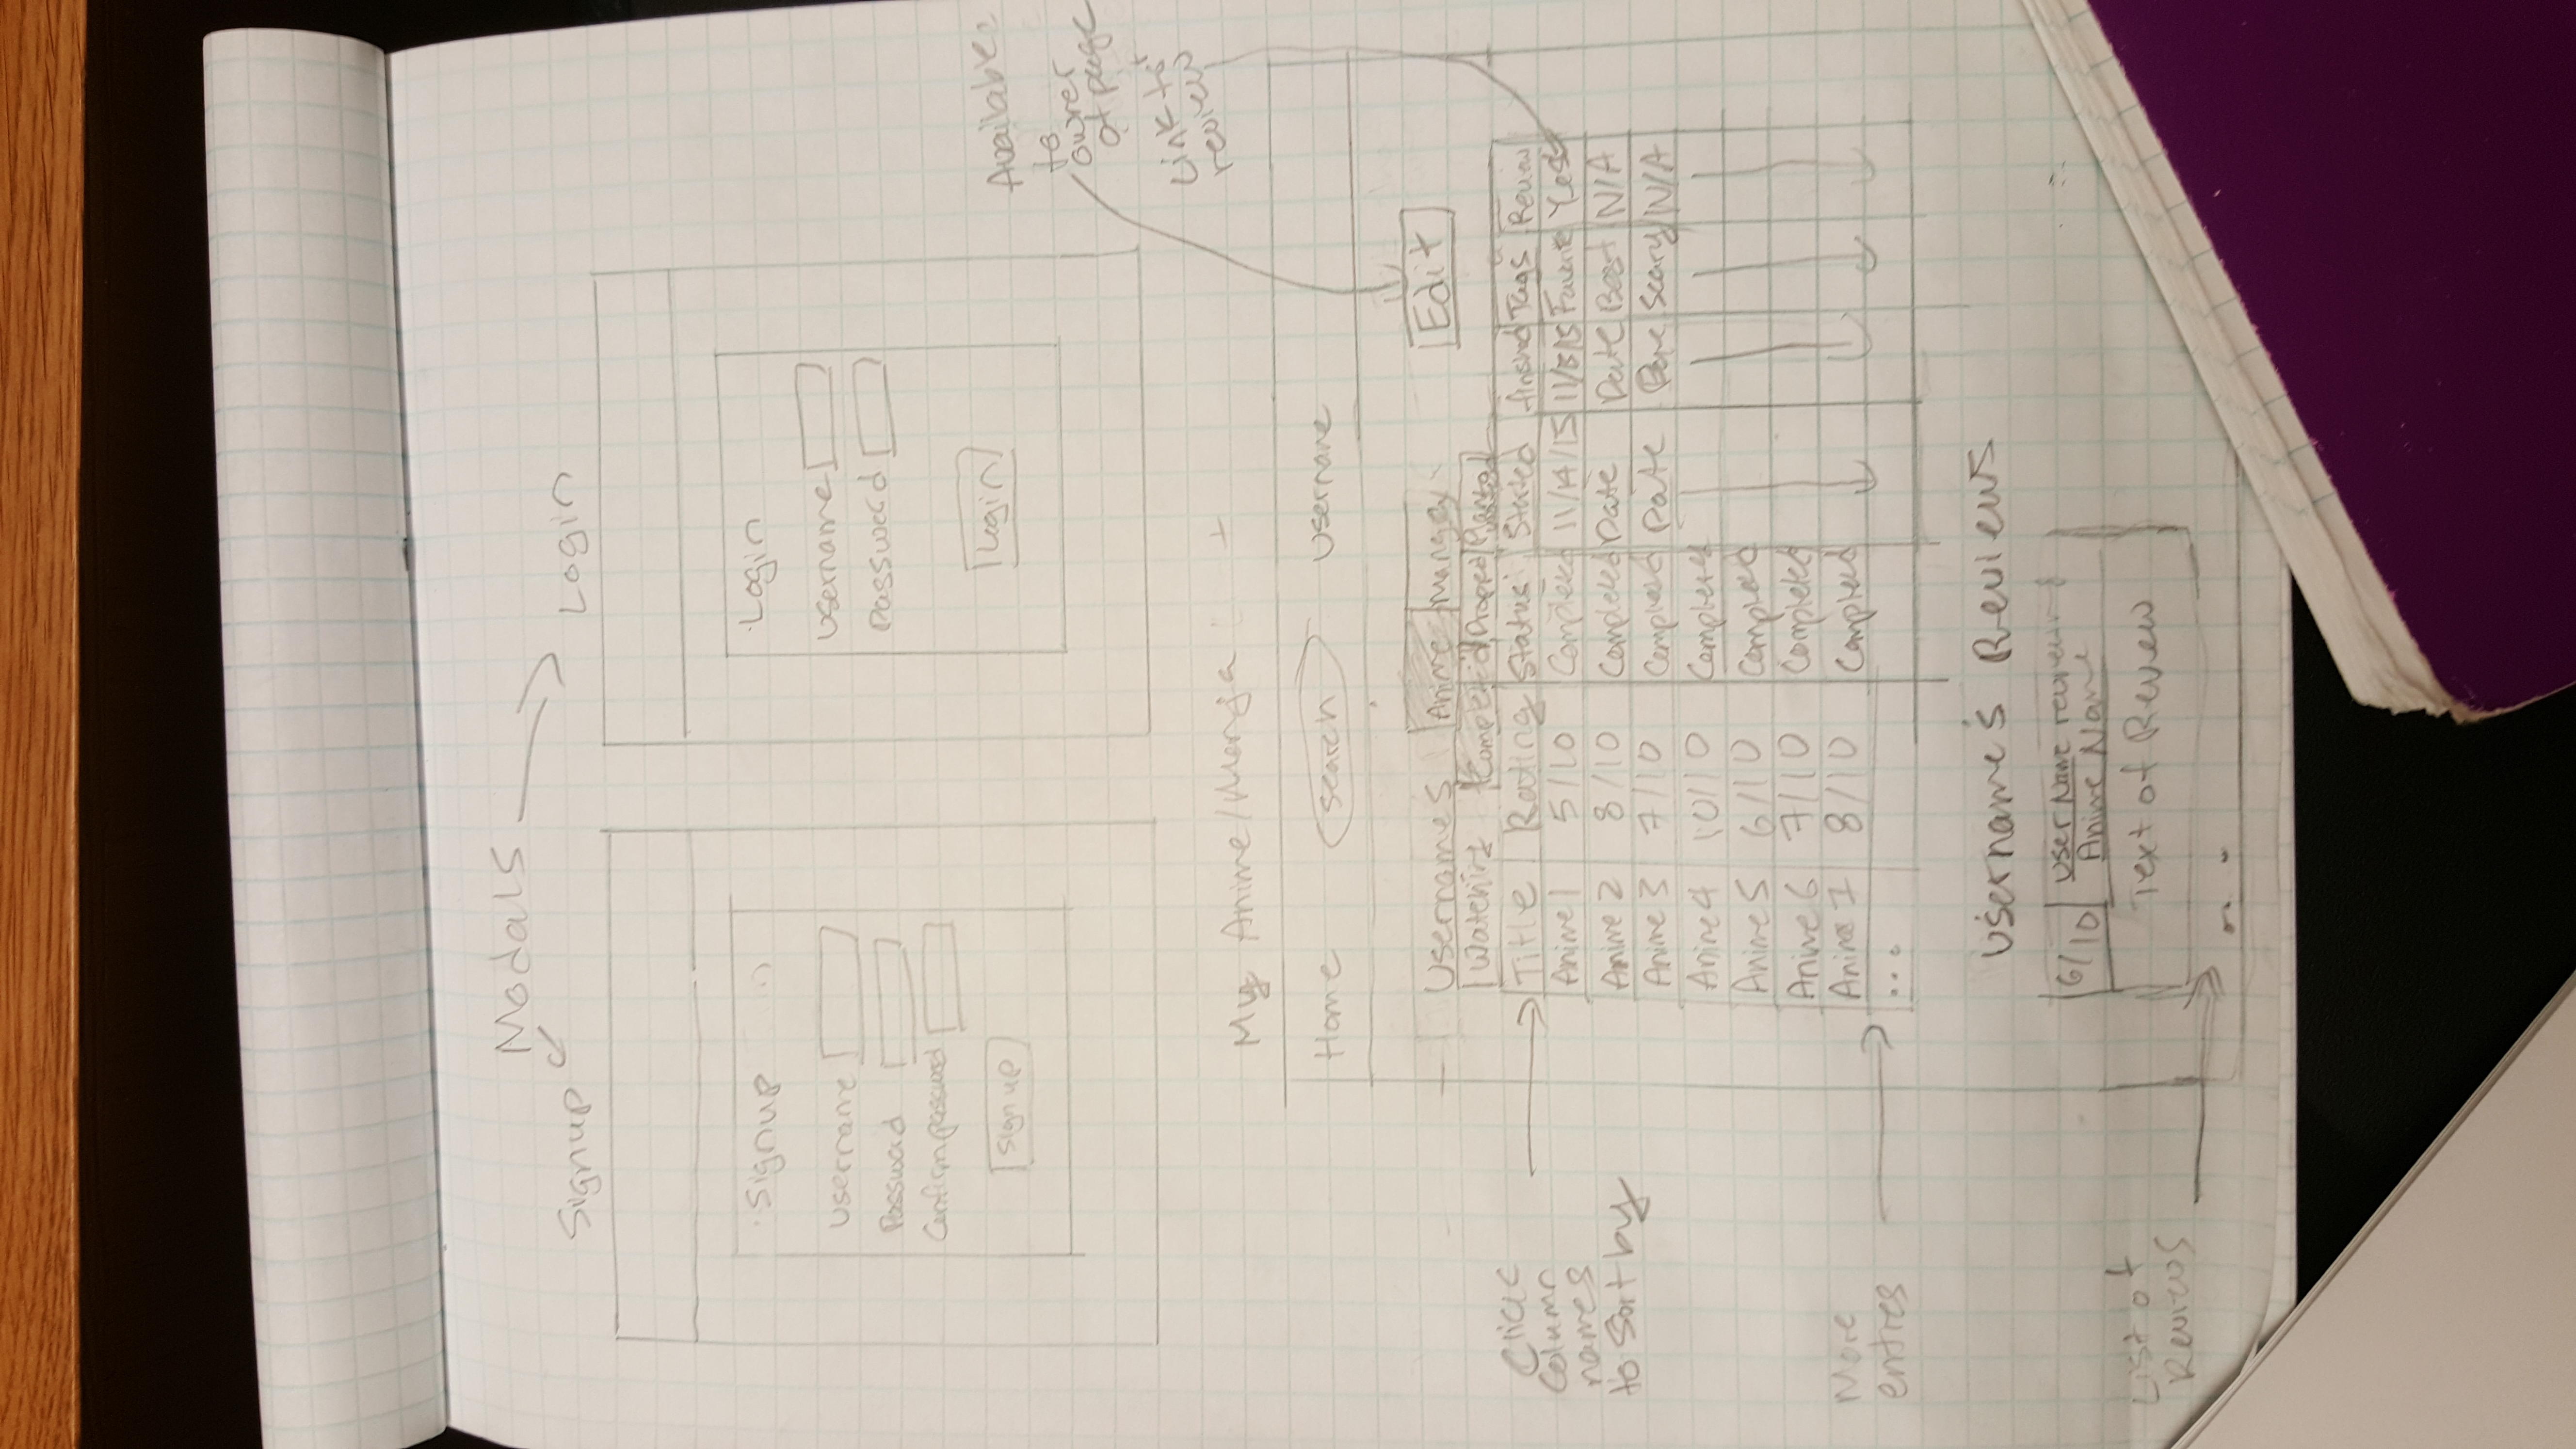 Modals
Signup
Login
Signup
Username
Password
Confirm password
Sign up
Login
Username
Password
Login
Available
to
owner
of page
Link to
review
My Anime/Manga
Home search Username
Username's Anime Manga Edit
Watching Completed Dropped
Click
Column
names
to sort by
Title Rating Status Started finished Tags Review
Anime 1 5/10 Completed 11/14/15 Favorite Yes
Anime 2 8/10 Completed Date Date Best N/A
Anime 3 7/10 Completed Date Date Scary N/A
Anime 4 10/10 Completed
Anime 5 6/10 Completed
Anime 6 7/10 Completed
Anime 7 8/10 Completed
More
entres
...
Username's Reviews
6/10 User Name reviewing
Anime Name
Text of Review
List of
Reviews
...